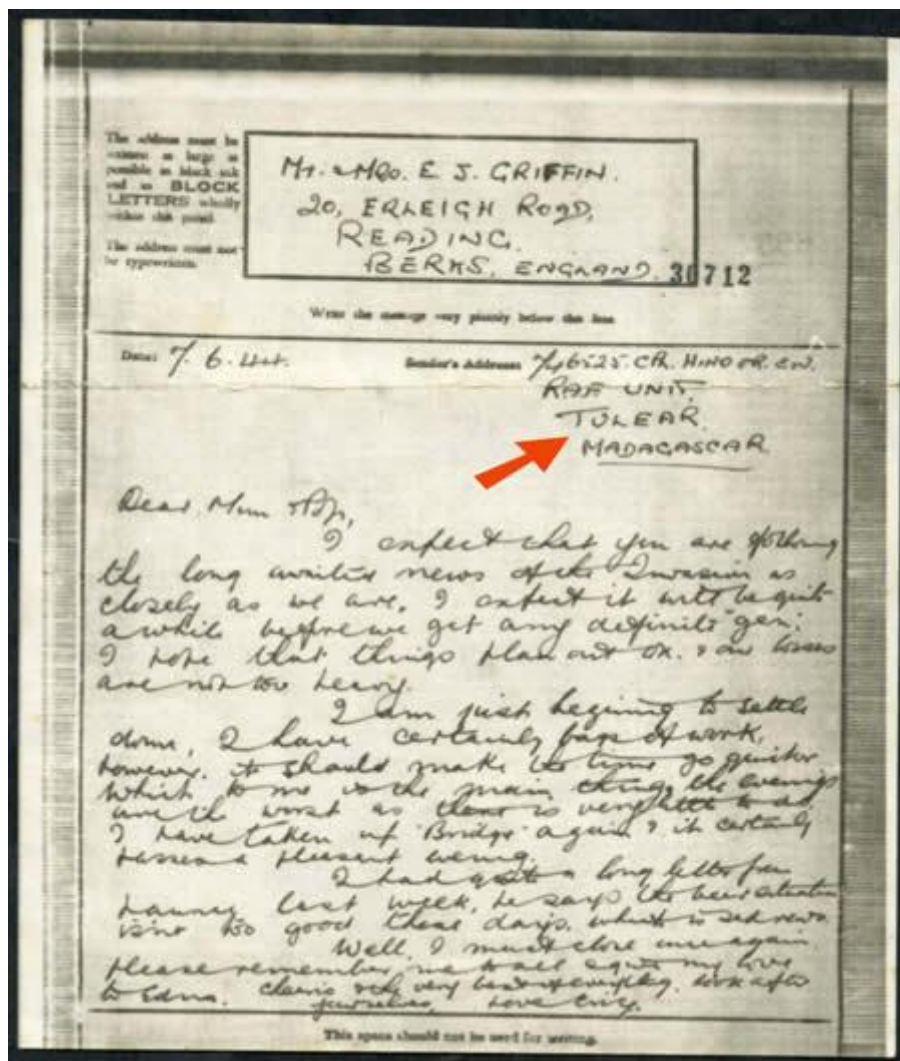 The address must be
written as large as
possible in black ink
and in BLOCK
LETTERS wholly
within this panel.
The address must not
be typewritten.
Mr. & Mrs. E. J. GRIFFIN.
20, ERLEIGH ROAD,
READING.
BERKS, ENGLAND.
30712
Write the message very plainly below this line
Date: 7.6.44.
Sender's Address: 746525. CPL.
RAF UNIT,
TULEAR.
MADAGASCAR
Dear Mum & Pop,
I expect that you are following
the long awaited news of the Invasion as
closely as we are, I expect it will be quite
awhile before we get any definite "gen".
I hope that things plan out OK. & our losses
are not too heavy.
I am just begining to settle
down, I have certainly bags of work,
however, it should make the time go quicker
which to me is the main thing, the evenings
are the worst as there is very little to do
I have taken up 'Bridge' again & it certainly
passes a pleasant evening.
I had a long letter from
last week, he says the beer situation
isn't too good these days, which is sad news
Well, I must close once again
please remember me to all & give my love
to Edna. Cheerio & the very best of everything, look after
yourselves, Love
This space should not be used for writing.